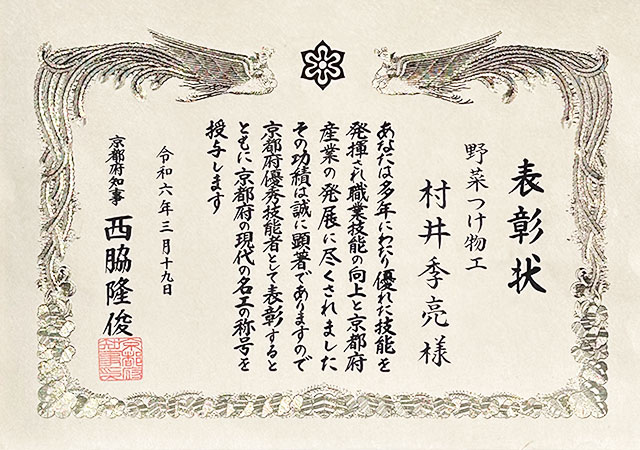 表彰状
野菜つけ物工
村井季亮様
あなたは多年にわたり優れた技能を
発揮され職業技能の向上と京都府
産業の発展に尽くされました
その功績は誠に顕著でありますので
京都府優秀技能者として表彰すると
ともに京都府の現代の名工の称号を
授与します
令和六年三月十九日
京都府知事
西脇隆俊
京都府
知事印